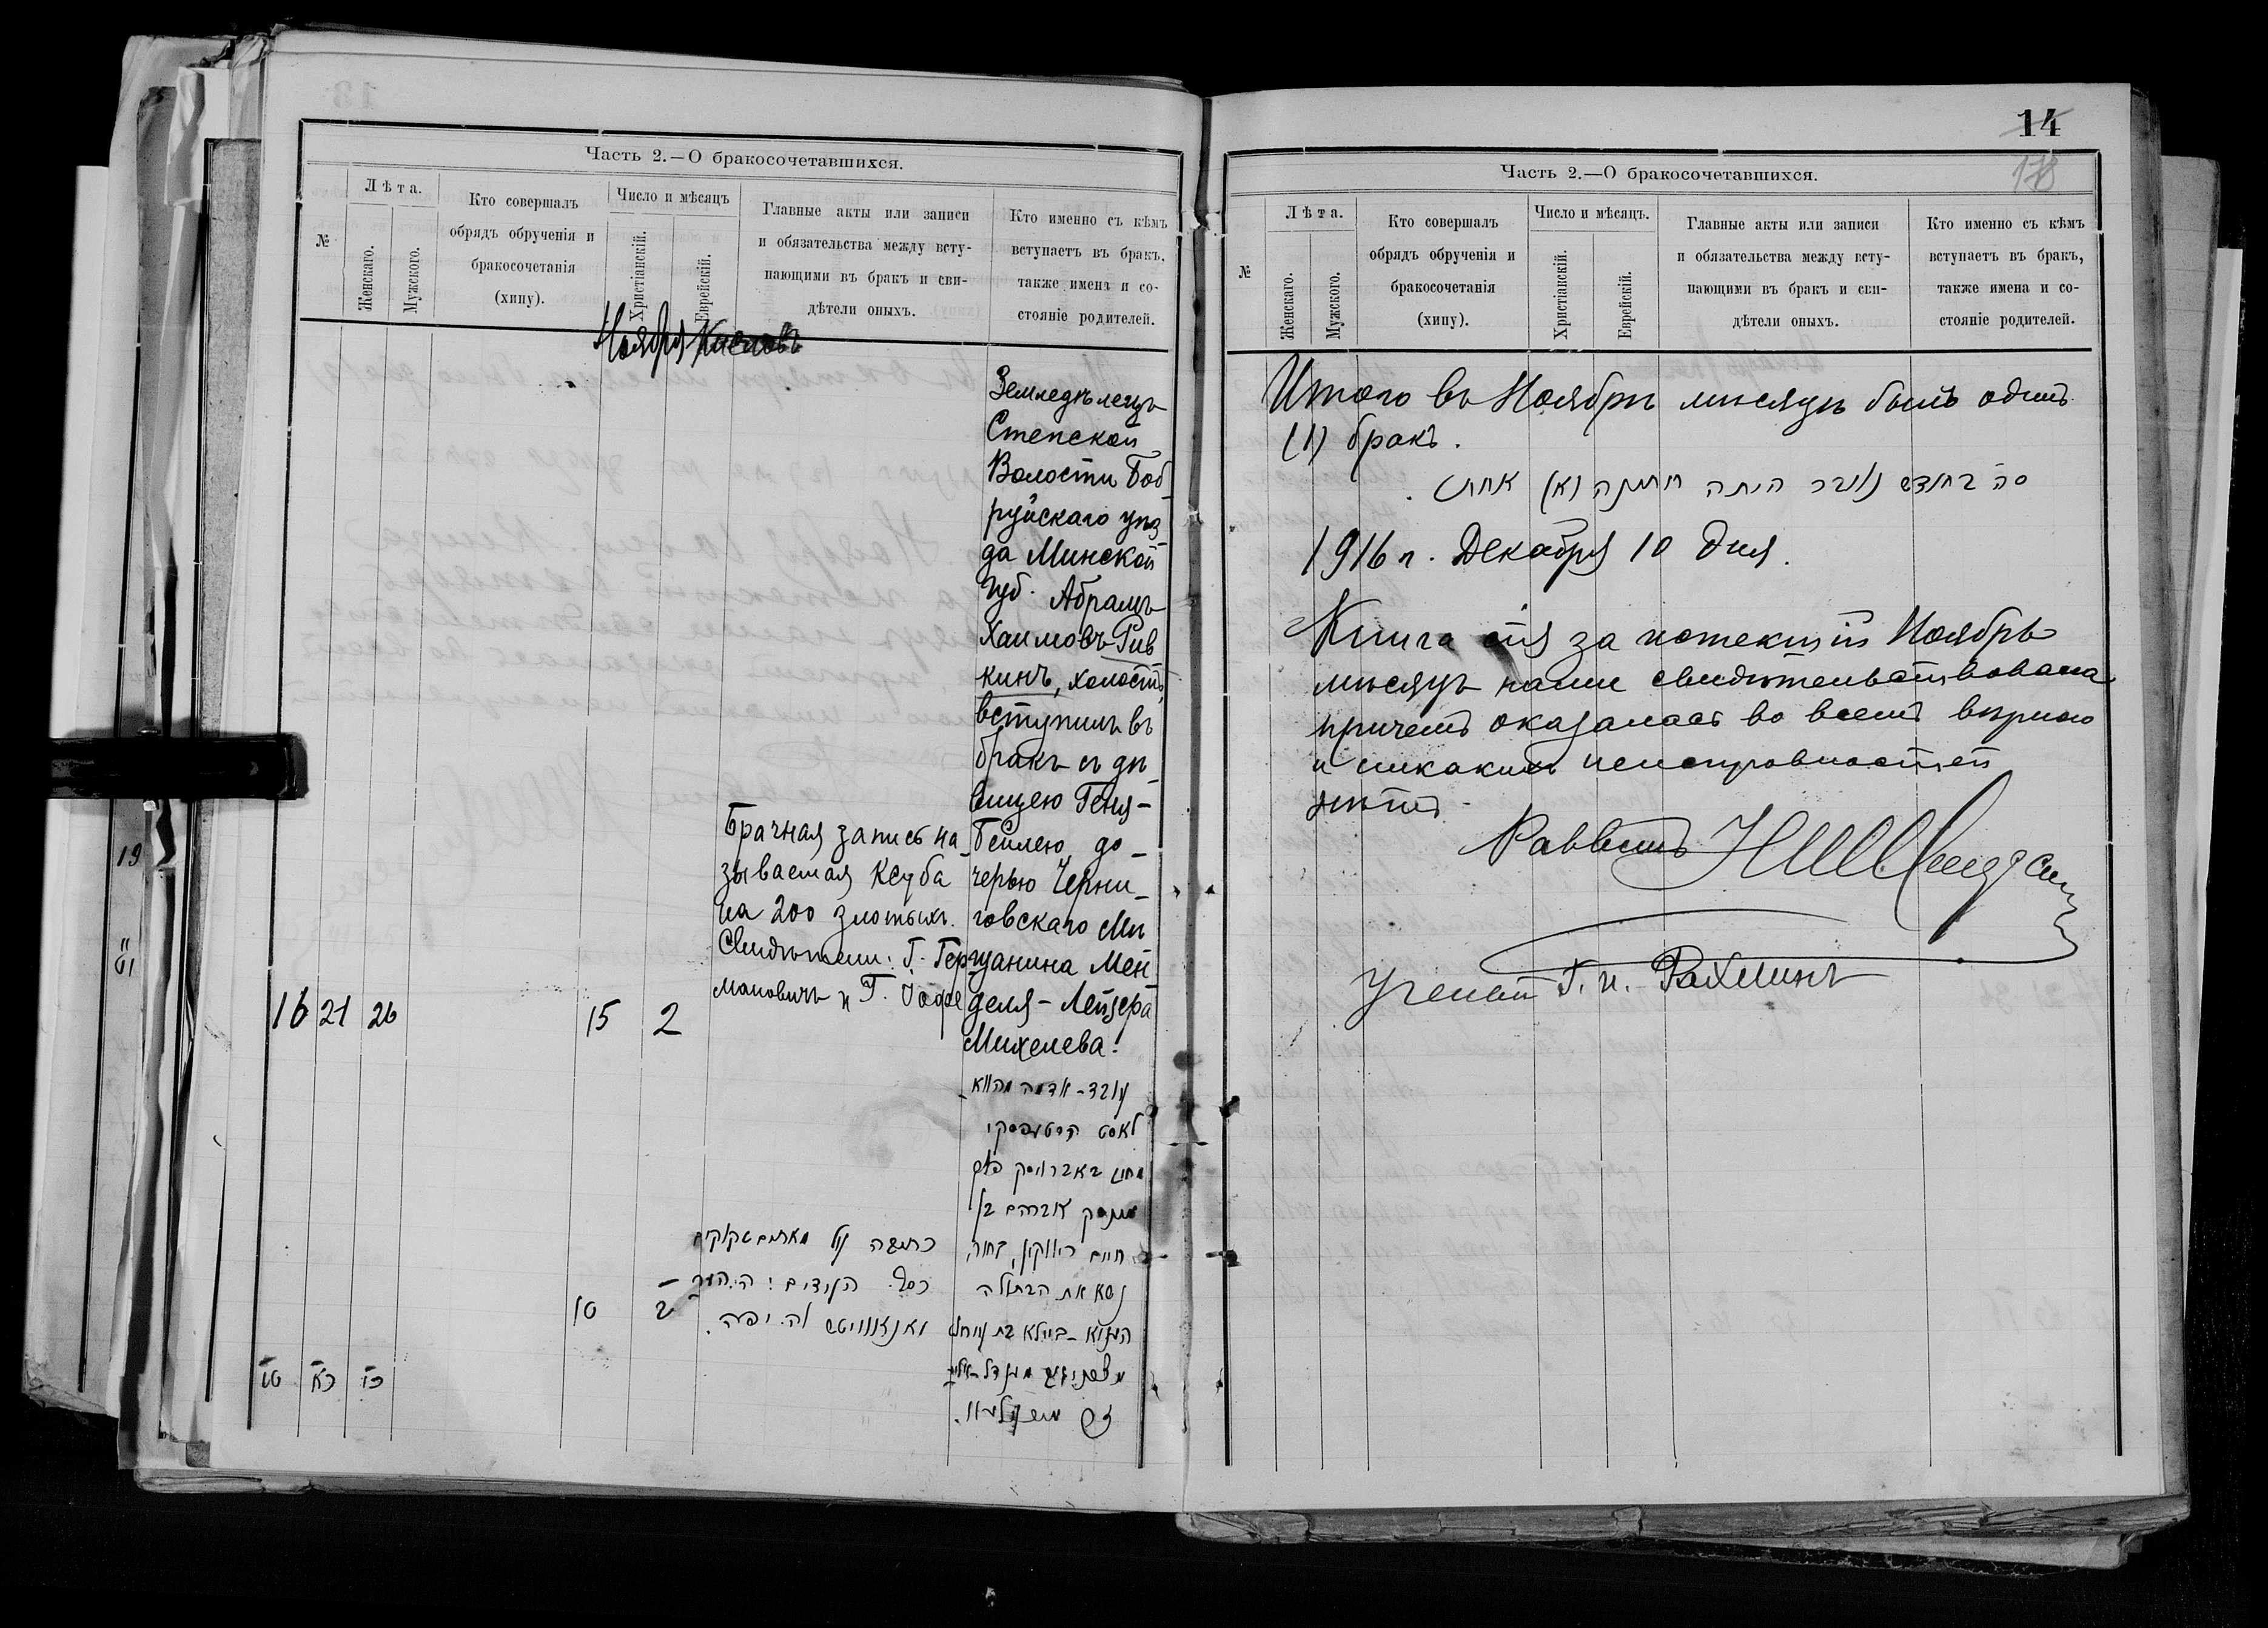 Часть 2.—О бракосочетавшихся.
№
Лѣта.
Женскаго.
Мужского.
Кто совершалъ
обрядъ обрученія и
бракосочетанія
(хипу).
Число и мѣсяцъ
Христіанскій.
Еврейскій.
Главные акты или записи
и обязательства между всту-
пающими въ бракъ и сви-
дѣтели оныхъ.
Кто именно съ кѣмъ
вступаетъ въ бракъ,
также имена и со-
стояніе родителей.
Ноября Кислевъ
16 21 26
15 2
Брачная запись на-
зываемая Ксуба
на 200 злотыхъ.
Свидѣтели: Г. Гер
мановичъ и Г. Іоффе
Земледѣлецъ
Степской
Волости Боб
руйскаго уѣз
да Минской
губ. Абрамъ
Хаимовъ Рив
кинъ, холостъ,
вступилъ въ
бракъ съ дѣ-
вицею Геня-
Бейлею до-
черью Черни-
говскаго Мѣ
щанина Мен
деля-Лейзера
Михелева.
עובד-אדמה
חיים ריווקין, בחור,
נשא את הבתולה
כתובה על מאתים זקוקים
כסף. העדים: ה. הער
מאנאוויטש וה. יפה.
10
כא כו
14
178
Часть 2.—О бракосочетавшихся.
№
Лѣта.
Женскаго.
Мужского.
Кто совершалъ
обрядъ обрученія и
бракосочетанія
(хипу).
Число и мѣсяцъ.
Христіанскій.
Еврейскій.
Главные акты или записи
и обязательства между всту-
пающими въ бракъ и сви-
дѣтели оныхъ.
Кто именно съ кѣмъ
вступаетъ въ бракъ,
также имена и со-
стояніе родителей.
Итого въ Ноябрѣ мѣсяцѣ былъ одинъ
(1) бракъ.
סה בחודש נוועבר היתה חתונה (א) אחת.
1916 г. Декабря 10 дня.
Книга сія за истекшій Ноябрь
мѣсяцъ нами свидѣтельствована
причемъ оказалась во всемъ вѣрною
и никакихъ неисправностей
нѣтъ.
Раввинъ
Ученый Г. И. Рахминъ